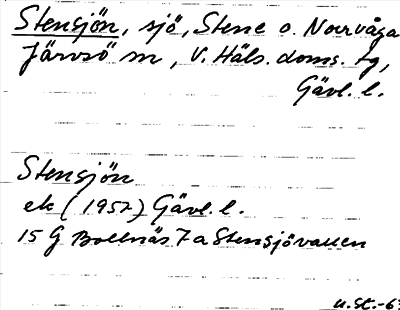 Stensjön, sjö, Stene o. Norrvåga
Järvsö sn, V. Häls. doms. tg,
Gävl. l.
Stensjön
ek (1957) Gävl. l.
15 G Bollnäs 7a Stensjövallen
U.St.-63